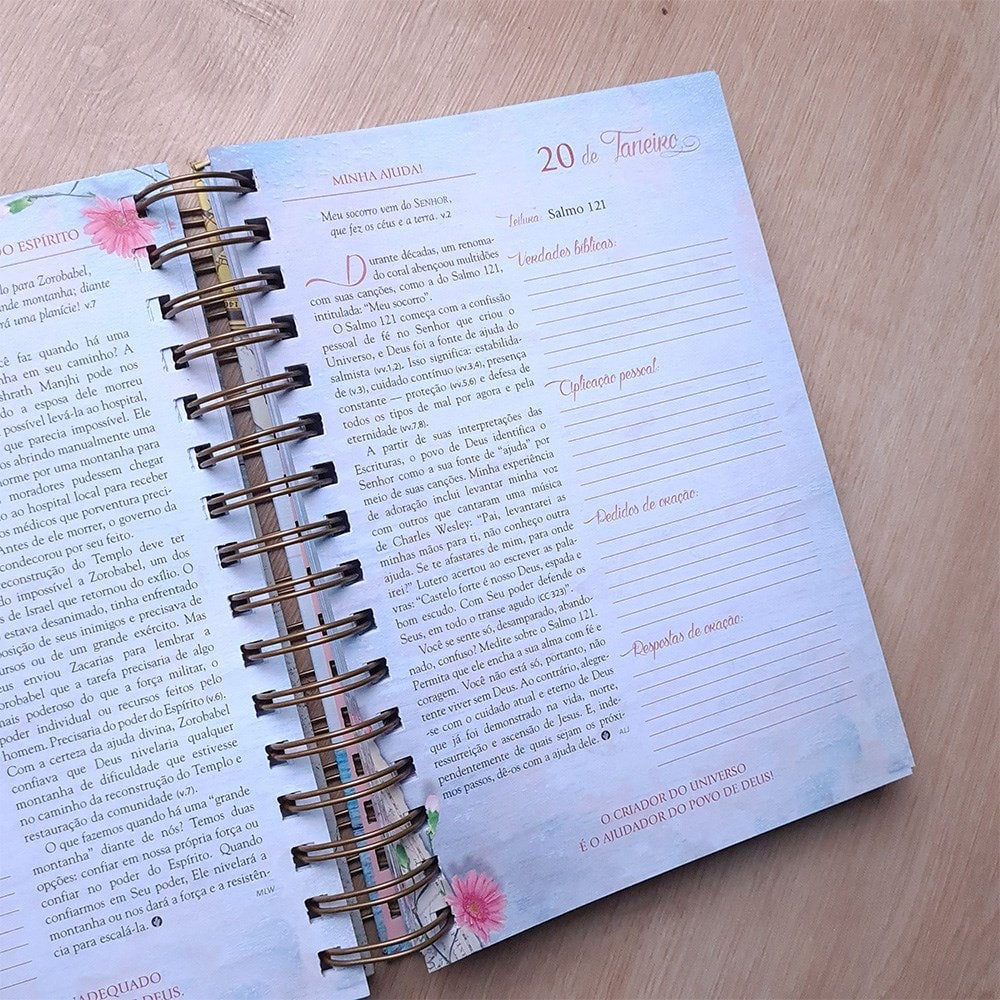 DO ESPÍRITO
para Zorobabel,
montanha; diante
uma planície! v.7
faz quando há uma
em seu caminho? A
Manjhi pode nos
a esposa dele morreu
possível levá-la ao hospital,
que parecia impossível. Ele
abrindo manualmente uma
por uma montanha para
moradores pudessem chegar
ao hospital local para receber
médicos que porventura preci-
Antes de ele morrer, o governo da
condecorou por seu feito.
reconstrução do Templo deve ter
impossível a Zorobabel, um dos
de Israel que retornou do exílio. O
estava desanimado, tinha enfrentado
de seus inimigos e precisava de
ou de um grande exército. Mas
enviou Zacarias para lembrar a
Zorobabel que a tarefa precisaria de algo
mais poderoso do que a força militar, o
poder individual ou recursos feitos pelo
homem. Precisaria do poder do Espírito (v.6).
Com a certeza da ajuda divina, Zorobabel
confiava que Deus nivelaria qualquer
montanha de dificuldade que estivesse
no caminho da reconstrução do Templo e
restauração da comunidade (v.7).
O que fazemos quando há uma “grande
montanha” diante de nós? Temos duas
opções: confiar em nossa própria força ou
confiar no poder do Espírito. Quando
confiarmos em Seu poder, Ele nivelará a
montanha ou nos dará a força e a resistên-
cia para escalá-la.
MLW
DEUS.
MINHA AJUDA!
20 de Janeiro
Meu socorro vem do SENHOR,
que fez os céus e a terra. v.2
Leitura: Salmo 121
Durante décadas, um renoma-
do coral abençoou multidões
com suas canções, como a do Salmo 121,
intitulada: “Meu socorro”.
O Salmo 121 começa com a confissão
pessoal de fé no Senhor que criou o
Universo, e Deus foi a fonte de ajuda do
salmista (vv.1,2). Isso significa: estabilida-
de (v.3), cuidado contínuo (vv.3,4), presença
constante — proteção (vv.5,6) e defesa de
todos os tipos de mal por agora e pela
eternidade (vv.7,8).
A partir de suas interpretações das
Escrituras, o povo de Deus identifica o
Senhor como a sua fonte de “ajuda” por
meio de suas canções. Minha experiência
de adoração inclui levantar minha voz
com outros que cantaram uma música
de Charles Wesley: “Pai, levantarei as
minhas mãos para ti, não conheço outra
ajuda. Se te afastares de mim, para onde
irei?” Lutero acertou ao escrever as pala-
vras: “Castelo forte é nosso Deus, espada e
bom escudo. Com Seu poder defende os
Seus, em todo o transe agudo (CC 323)”.
Você se sente só, desamparado, abando-
nado, confuso? Medite sobre o Salmo 121.
Permita que ele encha a sua alma com fé e
coragem. Você não está só, portanto, não
tente viver sem Deus. Ao contrário, alegre-
-se com o cuidado atual e eterno de Deus
que já foi demonstrado na vida, morte,
ressurreição e ascensão de Jesus. E, inde-
pendentemente de quais sejam os próxi-
mos passos, dê-os com a ajuda dele.
ALJ
Verdades bíblicas:
Aplicação pessoal:
Pedidos de oração:
Respostas de oração:
O CRIADOR DO UNIVERSO
É O AJUDADOR DO POVO DE DEUS!